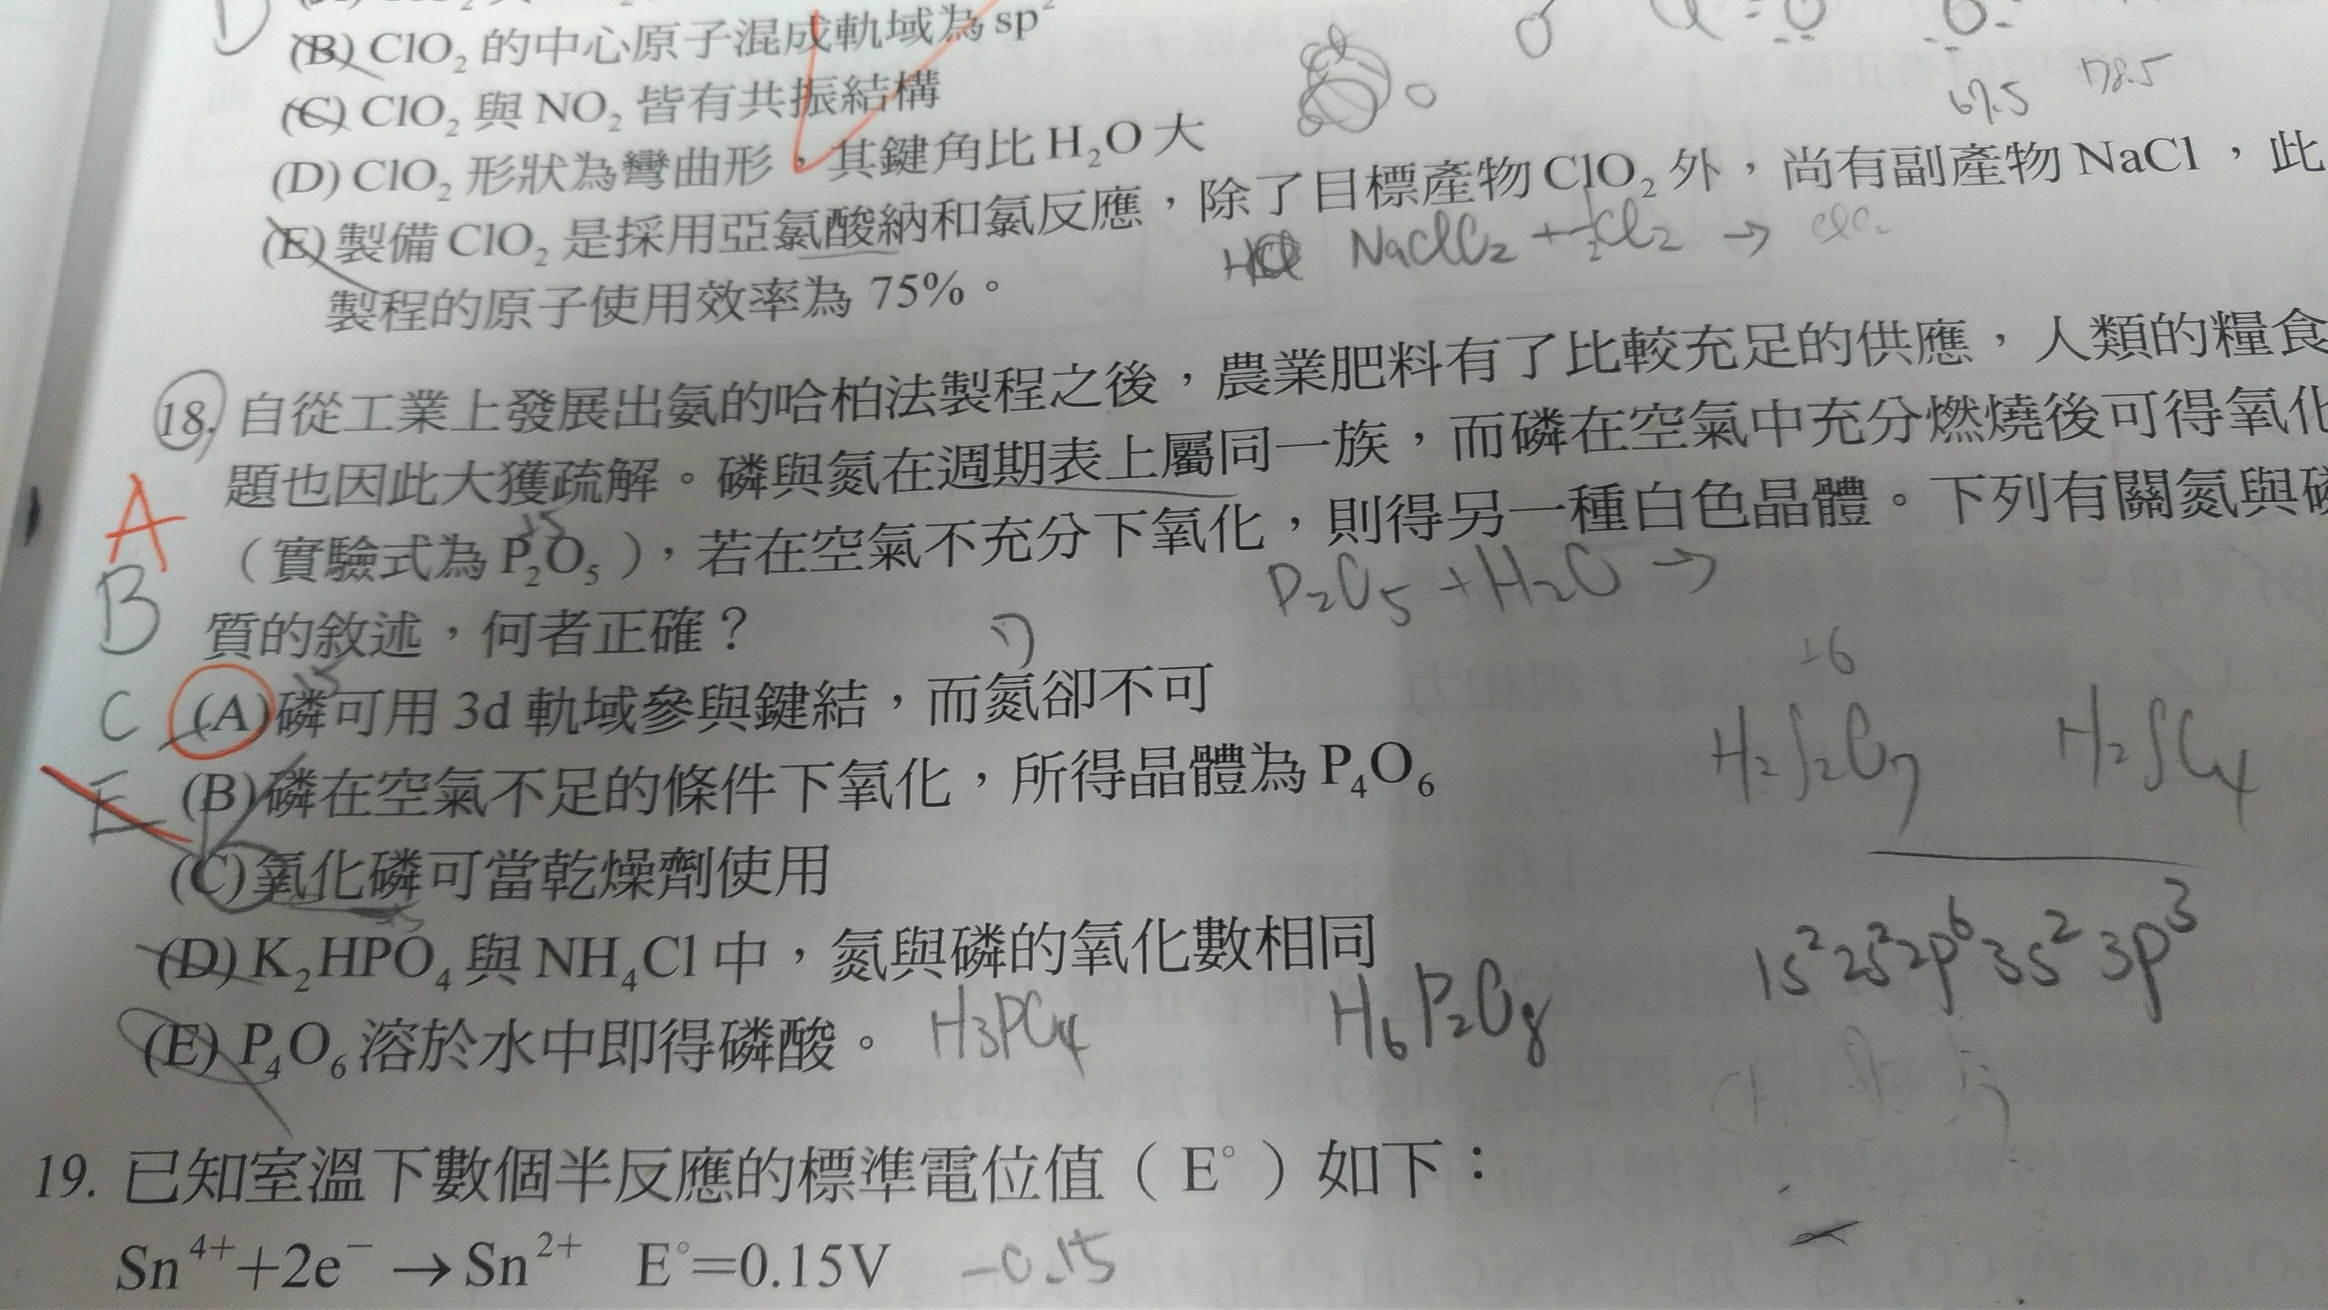 (B) ClO₂ 的中心原子混成軌域為 sp²
(C) ClO₂ 與 NO₂ 皆有共振結構
67.5 178.5
(D) ClO₂ 形狀為彎曲形，其鍵角比 H₂O 大
(E) 製備 ClO₂ 是採用亞氯酸納和氯反應，除了目標產物 ClO₂ 外，尚有副產物 NaCl，此
製程的原子使用效率為 75%。
NaClO₂ + ½Cl₂ → ClO₂
18. 自從工業上發展出氨的哈柏法製程之後，農業肥料有了比較充足的供應，人類的糧食
題也因此大獲疏解。磷與氮在週期表上屬同一族，而磷在空氣中充分燃燒後可得氧化
（實驗式為 P₂O₅），若在空氣不充分下氧化，則得另一種白色晶體。下列有關氮與磷
P₂O₅ + H₂O →
質的敘述，何者正確？
A
B
C
E
(A) 磷可用 3d 軌域參與鍵結，而氮卻不可
+6
H₂S₂O₇ H₂SO₄
(B) 磷在空氣不足的條件下氧化，所得晶體為 P₄O₆
(C) 氧化磷可當乾燥劑使用
(D) K₂HPO₄ 與 NH₄Cl 中，氮與磷的氧化數相同
1s²2s²2p⁶3s²3p³
(E) P₄O₆ 溶於水中即得磷酸。 H₃PO₄ H₆P₂O₈
19. 已知室溫下數個半反應的標準電位值（E°）如下：
Sn⁴⁺+2e⁻ → Sn²⁺ E°=0.15V -0.15